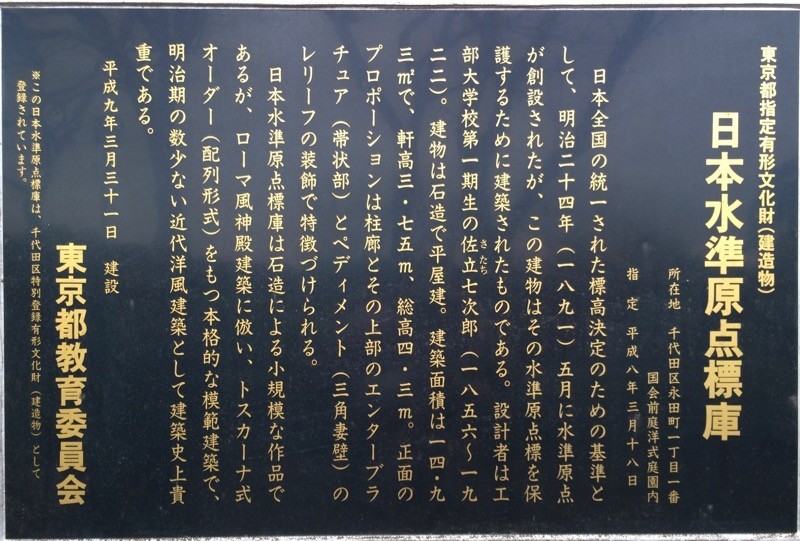 東京都指定有形文化財(建造物)
日本水準原点標庫
所在地 千代田区永田町一丁目一番
国会前庭洋式庭園内
指定 平成八年三月十八日
日本全国の統一された標高決定のための基準と
して、明治二十四年(一八九一)五月に水準原点
が創設されたが、この建物はその水準原点標を保
護するために建築されたものである。設計者は工
部大学校第一期生の佐立七次郎(一八五六〜一九
さたち
二二)。建物は石造で平屋建。建築面積は一四・九
三㎡で、軒高三・七五m、総高四・三m。正面の
プロポーションは柱廊とその上部のエンターブラ
チュア(帯状部)とペディメント(三角妻壁)の
レリーフの装飾で特徴づけられる。
日本水準原点標庫は石造による小規模な作品で
あるが、ローマ風神殿建築に倣い、トスカーナ式
オーダー(配列形式)をもつ本格的な模範建築で、
明治期の数少ない近代洋風建築として建築史上貴
重である。
平成九年三月三十一日 建設
東京都教育委員会
※この日本水準原点標庫は、千代田区特別登録有形文化財(建造物)として
登録されています。